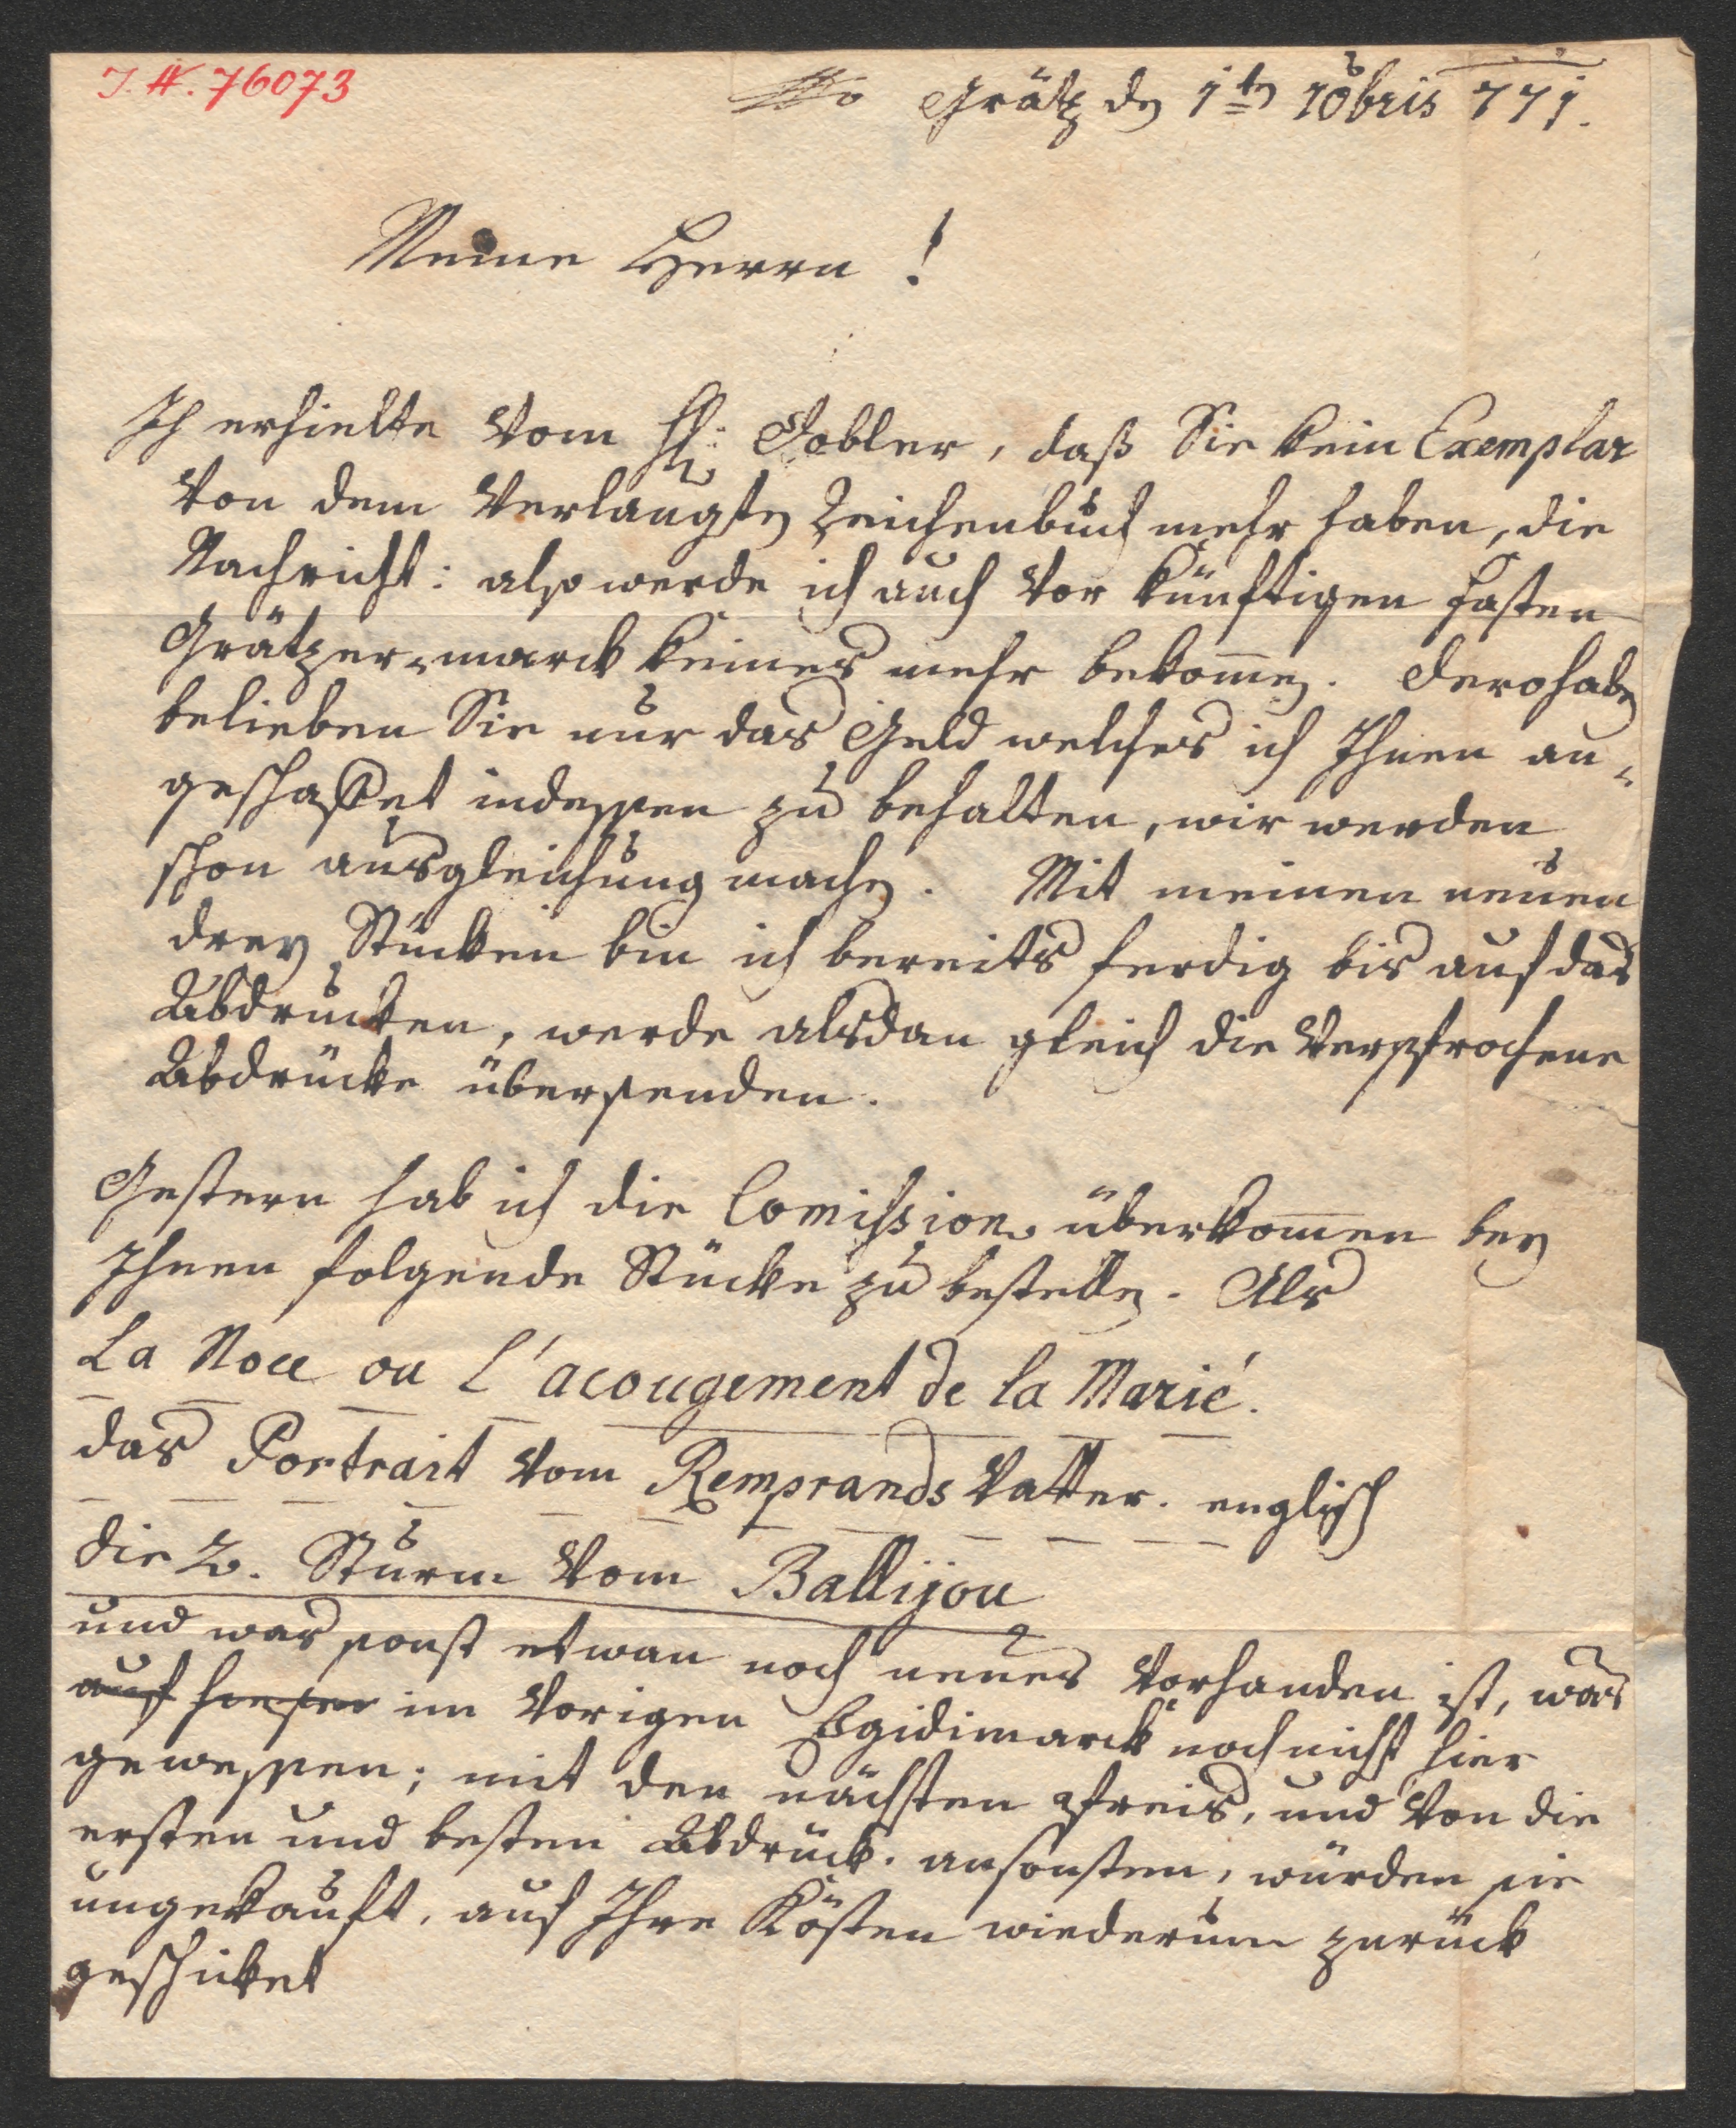 I. N. 76073
Grätz den 1ten 10bris 771.
Meine Herrn!
Ich erhielte vom H: Tobler, daß Sie kein Exemplar
von dem Verlangten Zeichenbuch mehr haben, die
Nachricht: also werde ich auch vor künftigen fasten
Grätzer-marck keines mehr bekommen. Derohalben
belieben Sie nur das Geld welches ich Ihnen an-
geschaffet indessen zu behalten, wir werden
schon ausgleichung machen. Mit meinen neuen
drey Stücken bin ich bereits ferdig bis auf das
Abdrucken, werde alsdan gleich die Versprochene
Abdrücke übersenden.
Gestern hab ich die Comission überkommen bey
Ihnen folgende Stücke zu bestellen. Als
La Noce ou l'acougement de la Marié.
das Portrait vom Remprands Vatter. englisch
die 2. Sturm vom Ballijou
und was sonst etwan noch neues vorhanden ist, was
auf im vorigen Egidimarck noch nicht hier
gewessen; mit den nächsten preis, und von die
ersten und besten Abdrück. ansonsten, würden sie
ungekauft, auf Ihre Kösten wiederum zurück
geschicket